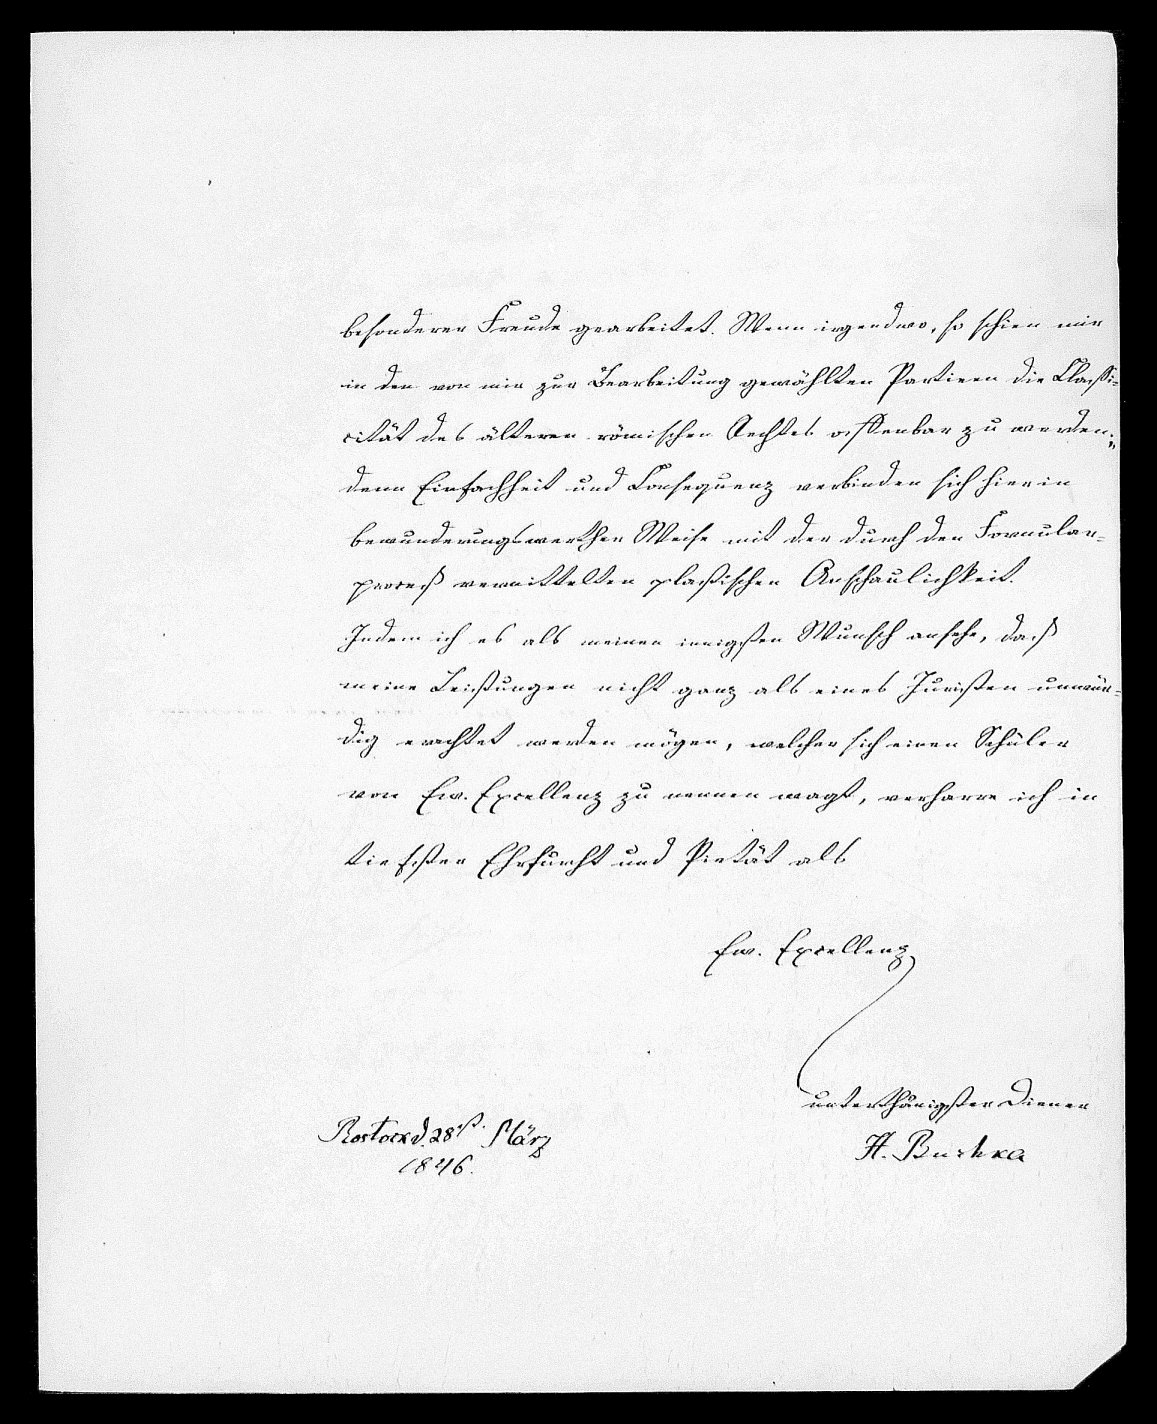 besonderer Freude gearbeitet. Wenn irgendwo, so schien mir
in den von mir zur Bearbeitung gewählten Partieen die Classi-
cität des älteren römischen Rechtes offenbar zu werden;
denn Einfachheit und Consequenz verbinden sich hier in
bewunderungswerther Weise mit der durch den Formular-
proceß vermittelten plastischen Anschaulichkeit.
Indem ich es als meinen innigsten Wunsch ansehe, daß
meine Leistungen nicht ganz als eines Juristen unwür-
dig erachtet werden mögen, welcher sich einen Schüler
von Ew. Excellenz zu nennen wagt, verharre ich in
tiefster Ehrfurcht und Pietät als
Ew. Excellenz
unterthänigster Diener
Rostock d. 28st. März
H. Buchka
1846.